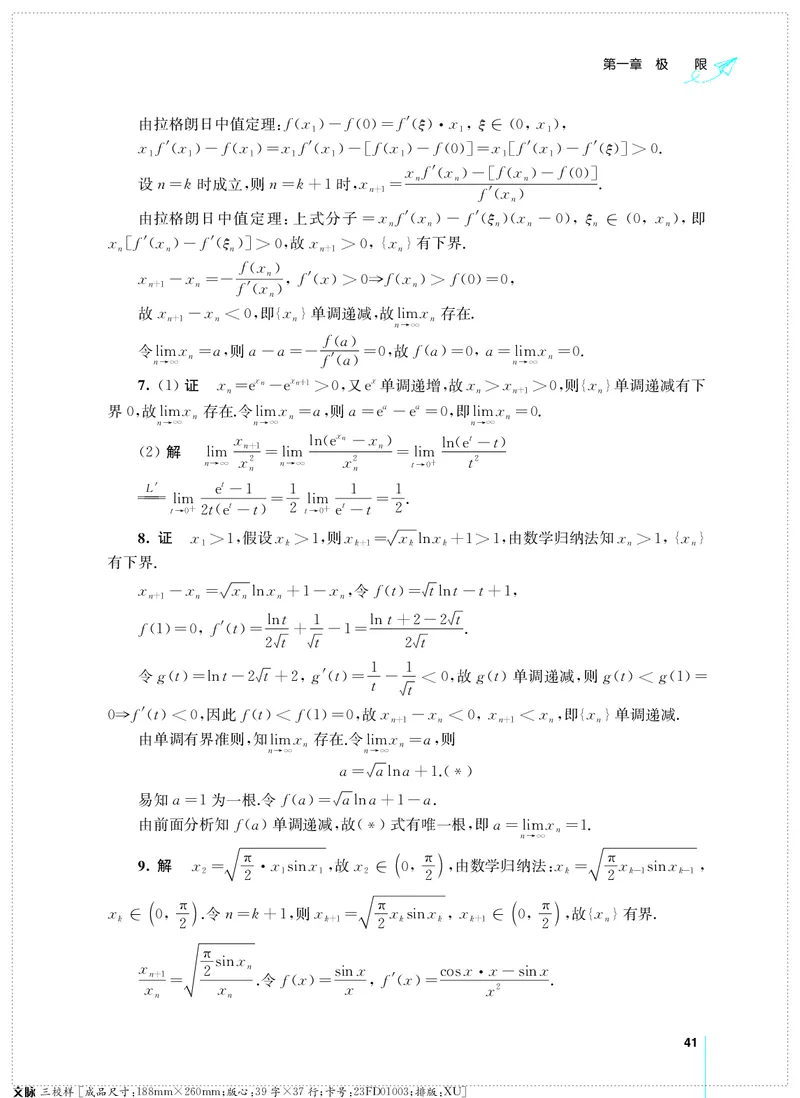 第一章 极 限
由拉格朗日中值定理:f(x₁)-f(0)=f′(ξ)·x₁, ξ∈(0, x₁),
x₁f′(x₁)-f(x₁)=x₁f′(x₁)-[f(x₁)-f(0)]=x₁[f′(x₁)-f′(ξ)]>0.
设 n=k 时成立,则 n=k+1 时,xₙ₊₁=\frac{xₙf′(xₙ)-[f(xₙ)-f(0)]}{f′(xₙ)}.
由拉格朗日中值定理:上式分子=xₙf′(xₙ)-f′(ξₙ)(xₙ-0), ξₙ∈(0, xₙ), 即
xₙ[f′(xₙ)-f′(ξₙ)]>0,故 xₙ₊₁>0, {xₙ}有下界.
xₙ₊₁-xₙ=-\frac{f(xₙ)}{f′(xₙ)}, f′(x)>0⇒f(xₙ)>f(0)=0,
故 xₙ₊₁-xₙ<0,即{xₙ}单调递减,故\lim_{n→∞}xₙ 存在.
令\lim_{n→∞}xₙ=a,则 a-a=-\frac{f(a)}{f′(a)}=0,故 f(a)=0, a=\lim_{n→∞}xₙ=0.
7. (1) 证 xₙ=e^{xₙ}-e^{xₙ₊₁}>0,又 eˣ 单调递增,故 xₙ>xₙ₊₁>0,则{xₙ}单调递减有下
界 0,故\lim_{n→∞}xₙ 存在.令\lim_{n→∞}xₙ=a,则 a=eᵃ-eᵃ=0,即\lim_{n→∞}xₙ=0.
(2) 解 \lim_{n→∞}\frac{xₙ₊₁}{xₙ²}=\lim_{n→∞}\frac{ln(e^{xₙ}-xₙ)}{xₙ²}=\lim_{t→0⁺}\frac{ln(eᵗ-t)}{t²}
\xlongequal{L′}\lim_{t→0⁺}\frac{eᵗ-1}{2t(eᵗ-t)}=\frac{1}{2}\lim_{t→0⁺}\frac{1}{eᵗ-t}=\frac{1}{2}.
8. 证 x₁>1,假设xₖ>1,则xₖ₊₁=\sqrt{xₖ}lnxₖ+1>1,由数学归纳法知xₙ>1, {xₙ}
有下界.
xₙ₊₁-xₙ=\sqrt{xₙ}lnxₙ+1-xₙ,令 f(t)=\sqrt{t}lnt-t+1,
f(1)=0, f′(t)=\frac{lnt}{2\sqrt{t}}+\frac{1}{\sqrt{t}}-1=\frac{ln t+2-2\sqrt{t}}{2\sqrt{t}}.
令 g(t)=lnt-2\sqrt{t}+2, g′(t)=\frac{1}{t}-\frac{1}{\sqrt{t}}<0,故 g(t)单调递减,则 g(t)<g(1)=
0⇒f′(t)<0,因此 f(t)<f(1)=0,故 xₙ₊₁-xₙ<0, xₙ₊₁<xₙ,即{xₙ}单调递减.
由单调有界准则,知\lim_{n→∞}xₙ 存在.令\lim_{n→∞}xₙ=a,则
a=\sqrt{a}lna+1.(*)
易知 a=1 为一根.令 f(a)=\sqrt{a}lna+1-a.
由前面分析知 f(a)单调递减,故(*)式有唯一根,即 a=\lim_{n→∞}xₙ=1.
9. 解 x₂=\sqrt{\frac{π}{2}·x₁sinx₁},故 x₂∈(0, \frac{π}{2}),由数学归纳法:xₖ=\sqrt{\frac{π}{2}xₖ₋₁sinxₖ₋₁},
xₖ∈(0, \frac{π}{2}).令 n=k+1,则 xₖ₊₁=\sqrt{\frac{π}{2}xₖsinxₖ}, xₖ₊₁∈(0, \frac{π}{2}),故{xₙ}有界.
\frac{xₙ₊₁}{xₙ}=\sqrt{\frac{\frac{π}{2}sinxₙ}{xₙ}}.令 f(x)=\frac{sinx}{x}, f′(x)=\frac{cosx·x-sinx}{x²}.
41
文脉 三校样[成品尺寸:188mm×260mm;版心:39字×37行;卡号:23FD01003;排版:XU]